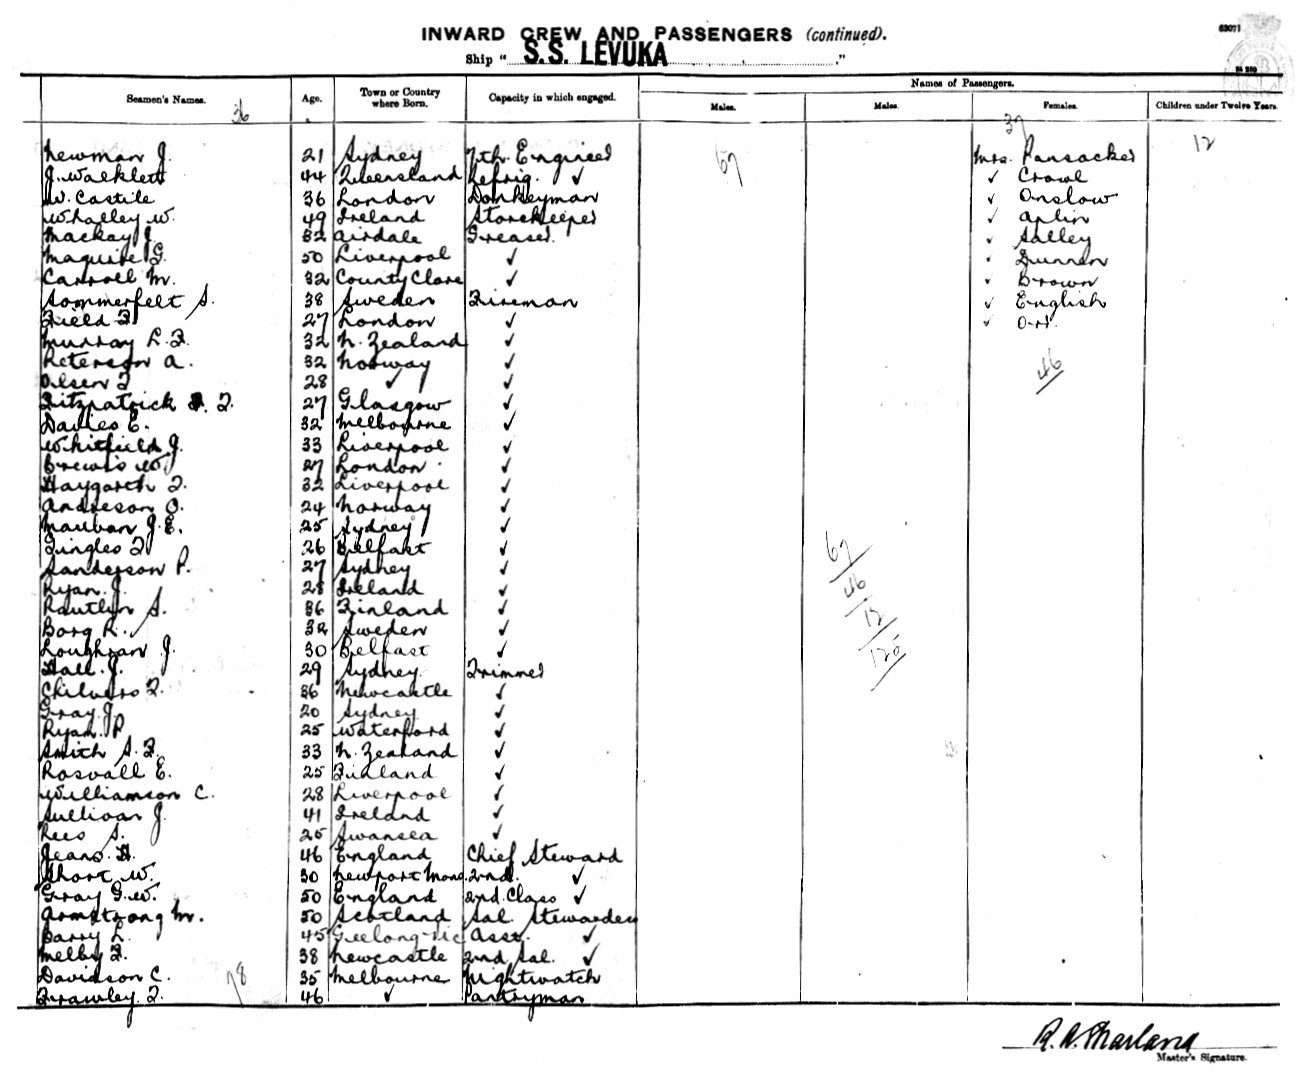 63071
INWARD CREW AND PASSENGERS (continued).
Ship "S.S. LEVUKA"
Seamen's Names. Age. Town or Country where Born. Capacity in which engaged. Names of Passengers.
Males. Males. Females. Children under Twelve Years.
36 37 12 67
Newman J. 21 Sydney 7th Engineer Mrs. Pansacker
J. Walklett 44 Queensland Refrig. ✓ ✓ Crowl
W. Castile 36 London Donkeyman ✓ Onslow
Whalley W. 49 Ireland Storekeeper ✓ Aplin
Mackay J. 32 Airdale Greaser ✓ Salley
Maguire G. 50 Liverpool ✓ ✓
Carroll M. 32 County Clare ✓ ✓ Brown
Sommerfelt S. 38 Sweden Fireman ✓ English
Field F. 27 London ✓ ✓ Orr
Murray L. F. 32 N. Zealand ✓
Peterson A. 32 Norway ✓
Olsen F 28 ✓ ✓
46
Fitzpatrick F. 27 Glasgow ✓
Davies E. 32 Melbourne ✓
Whitfield J. 33 Liverpool ✓
Brewis W 27 London ✓
Haygarth F. 32 Liverpool ✓
Andreson O. 24 Norway ✓
Mauban J. E. 25 Sydney ✓
Tingles F 26 Belfast ✓
Sanderson P. 27 Sydney ✓
Ryan J. 28 Ireland ✓
S. 36 Finland ✓
Borg R. 32 Sweden ✓
Loughran J. 30 Belfast ✓
67
46
12
125
Hall J. 29 Sydney Trimmer
Chilvers F. 36 Newcastle ✓
Gray J. 20 Sydney ✓
Ryan P. 25 Waterford ✓
Smith S. F. 33 N. Zealand ✓
Rosvall E. 25 Finland ✓
Williamson C. 28 Liverpool ✓
Sullivan J. 41 Ireland ✓
Rees S. 25 Swansea ✓
Jeans H. 46 England Chief Steward
Short W. 30 Newport Mon. 2nd. ✓
Gray G. W. 50 England 2nd. Class ✓
Armstrong M. 50 Scotland Sal. Stewardess
Barry L. 45 Geelong Vic Asst. ✓
Melby F. 38 Newcastle 2nd. Sal. ✓
Davidson C. 35 Melbourne Nightwatch
Frawley F. 78 46 ✓ Pantryman
R. A. Sharland
Master's Signature.